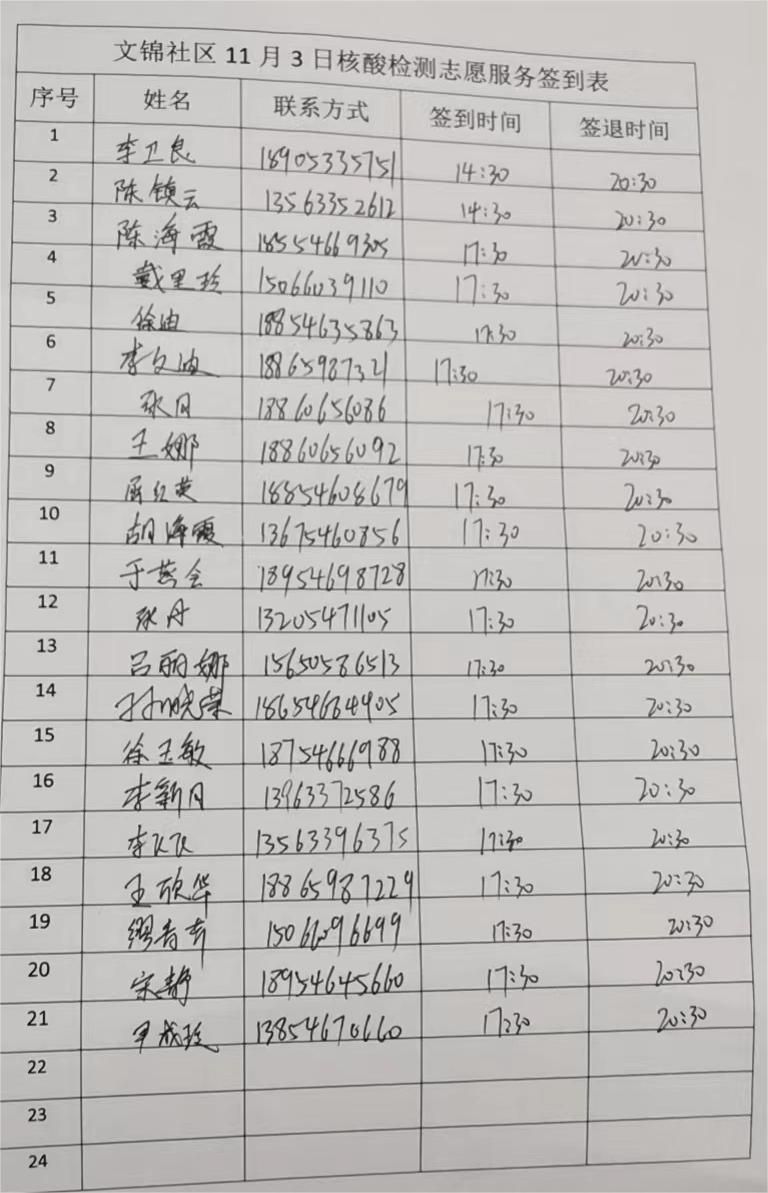 文锦社区 11 月 3 日核酸检测志愿服务签到表
序号 姓名 联系方式 签到时间 签退时间
1 李卫良 18905335751 14:30 20:30
2 陈镇云 13563352612 14:30 20:30
3 陈海霞 18554669305 17:30 20:30
4 戴里玲 15066039110 17:30 20:30
5 徐迪 18854635863 17:30 20:30
6 李文迪 18865987321 17:30 20:30
7 张月 18860656086 17:30 20:30
8 王娜 18860656092 17:30 20:30
9 红英 18854608679 17:30 20:30
10 胡海霞 13675460856 17:30 20:30
11 于燕会 18954698728 17:30 20:30
12 张丹 13205471105 17:30 20:30
13 吕丽娜 15650586513 17:30 20:30
14 孙晓荣 18654684905 17:30 20:30
15 徐玉敏 18754666988 17:30 20:30
16 李新月 13963372586 17:30 20:30
17 李飞飞 13563396375 17:30 20:30
18 王欣华 18865987229 17:30 20:30
19 17:30 20:30
20 宋静 18954645660 17:30 20:30
21 13854670660 17:30 20:30
22
23
24